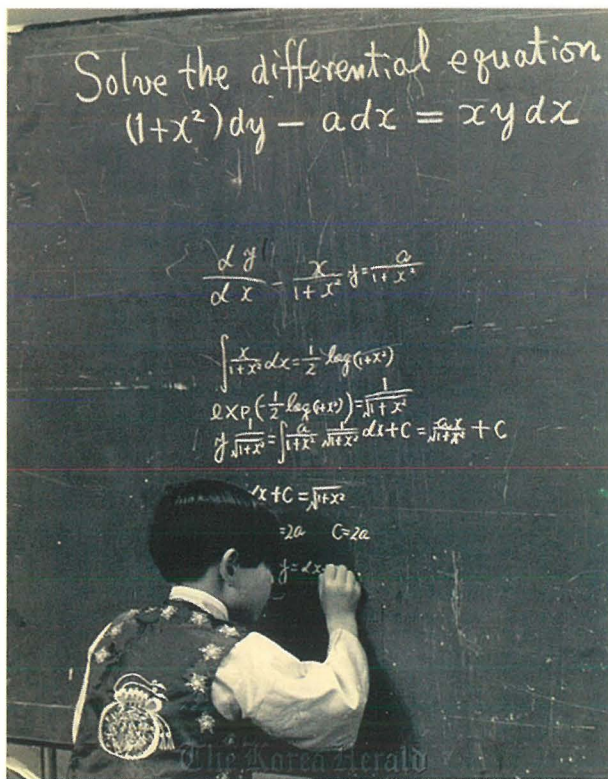 Solve the differential equation
(1+x²)dy − adx = xydx
dy/dx − x/(1+x²) y = a/(1+x²)
∫ x/(1+x²) dx = 1/2 log(1+x²)
exp(−1/2 log(1+x²)) = 1/√(1+x²)
y 1/√(1+x²) = ∫ a/(1+x²) 1/√(1+x²) dx + C = ax/√(1+x²) + C
x + C = √(1+x²)
=2a C=2a
y=αx
The Korea Herald